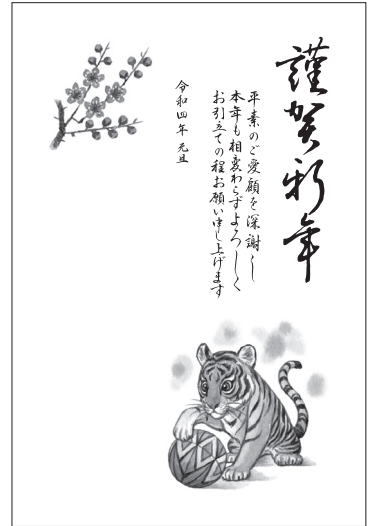 謹賀新年
平素のご愛顧を深謝し
本年も相変わらずよろしく
お引立ての程お願い申し上げます
令和四年 元旦